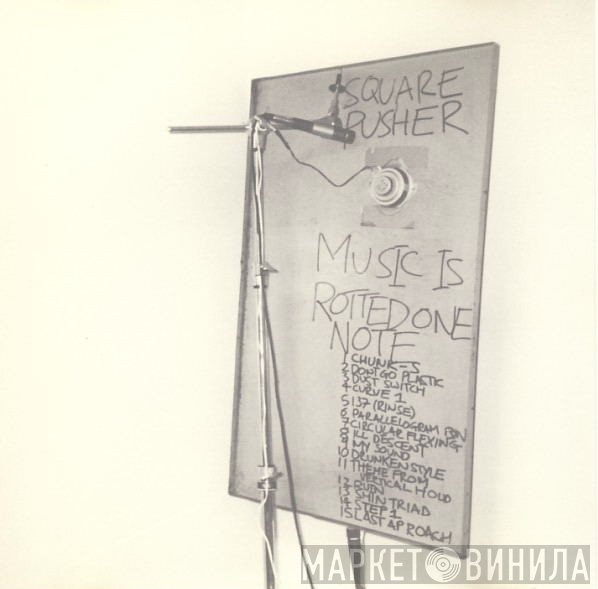 SQUARE
PUSHER
MUSIC IS
ROTTED ONE
NOTE
1 CHUNK-S
2 DONT GO PLASTIC
3 DUST SWITCH
4 CURVE 1
5 137 (RINSE)
6 PARALLELOGRAM BIN
7 CIRCULAR FLEXING
8 ILL DESCENT
9 MY SOUND
10 DRUNKEN STYLE
11 THEME FROM
VERTICAL HOLD
12 RUIN
13 SHIN TRIAD
14 STEP 1
15 LAST AP ROACH
МАРКЕТ ВИНИЛА